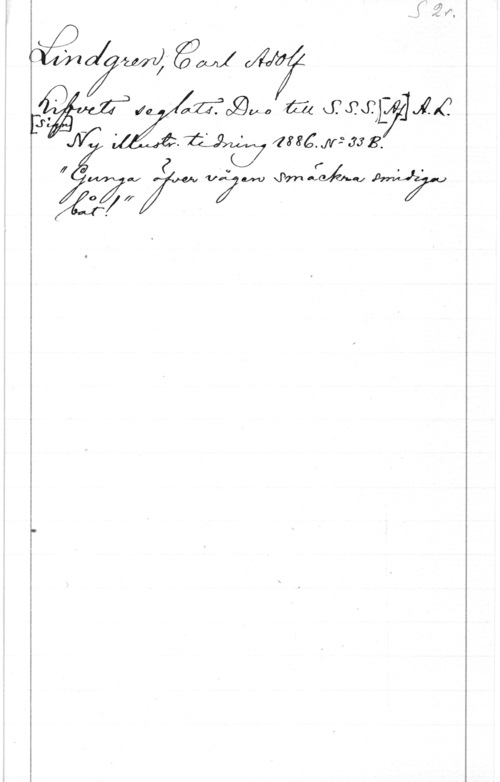 S 2r.
Lindgren, Carl Adolf
Lifvets seglats. Duo till S.S.S. [Af] A.L.
[sign] Ny illustr. tidning 1886. Nº 33 B.
"Gunga öfver vågen smäckra smidiga
båt!"